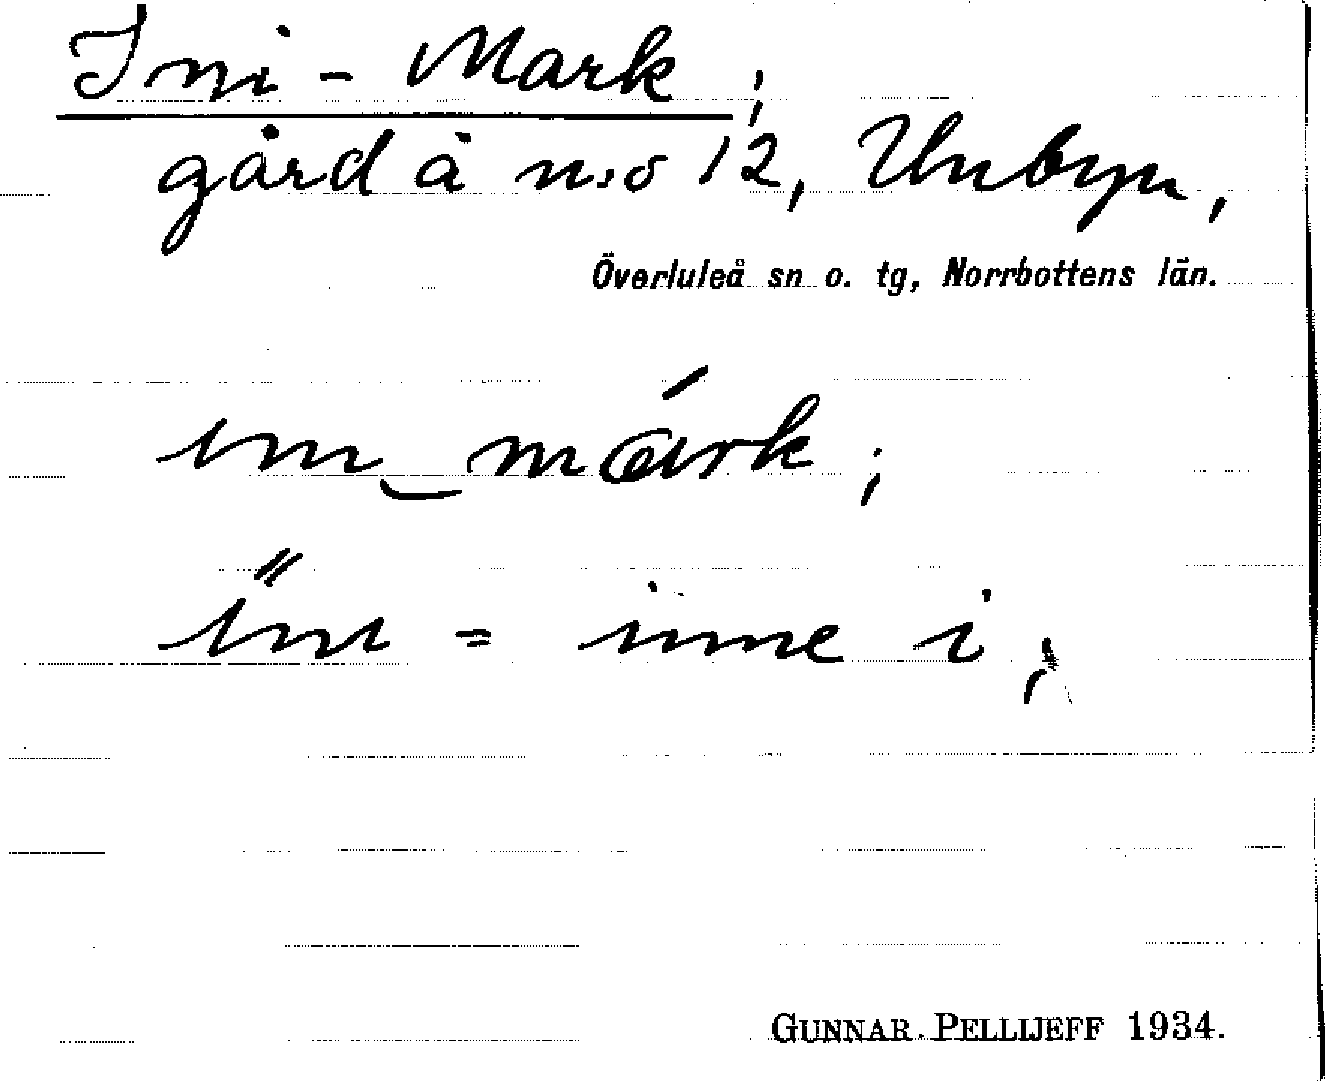 Ini-Mark;
gård å n:o 12, Unbyn,
Överluleå sn o. tg, Norrbottens län.
ini‿márk;
= inne i;
GUNNAR PELLIJEFF 1934.